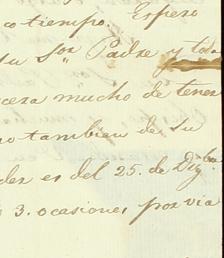 co tiempo. Espero
su Sor. Padre y toda
cera mucho de tener
no tambien de su
der es del 25. de Digbre
3. ocasiones por via